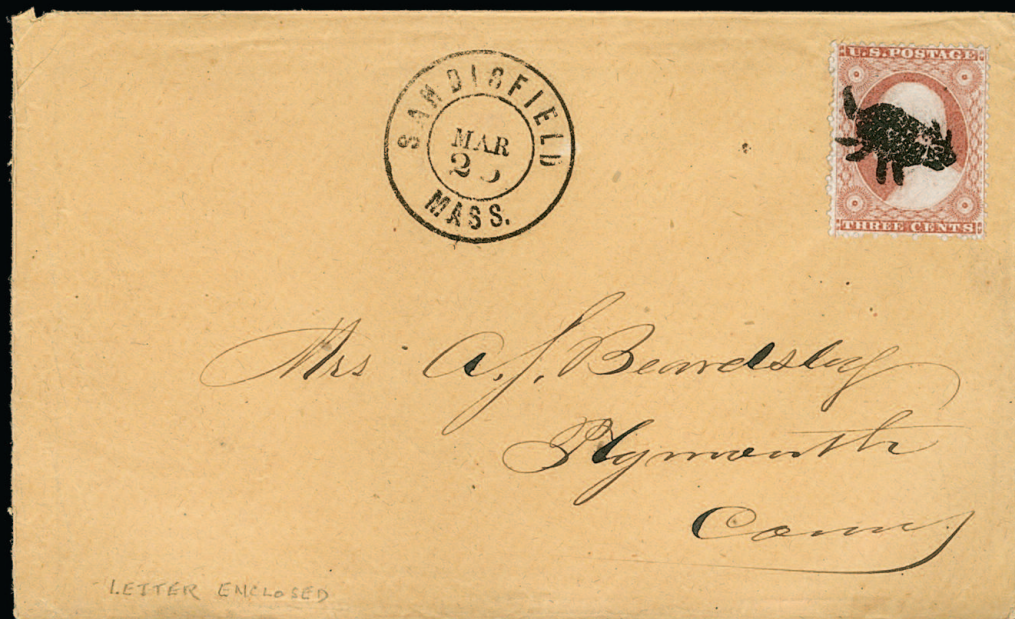 SANDISFIELD
MAR
MASS.
U.S. POSTAGE
THREE CENTS
Mrs A. J. Beardsley
Plymouth
Conn
LETTER ENCLOSED